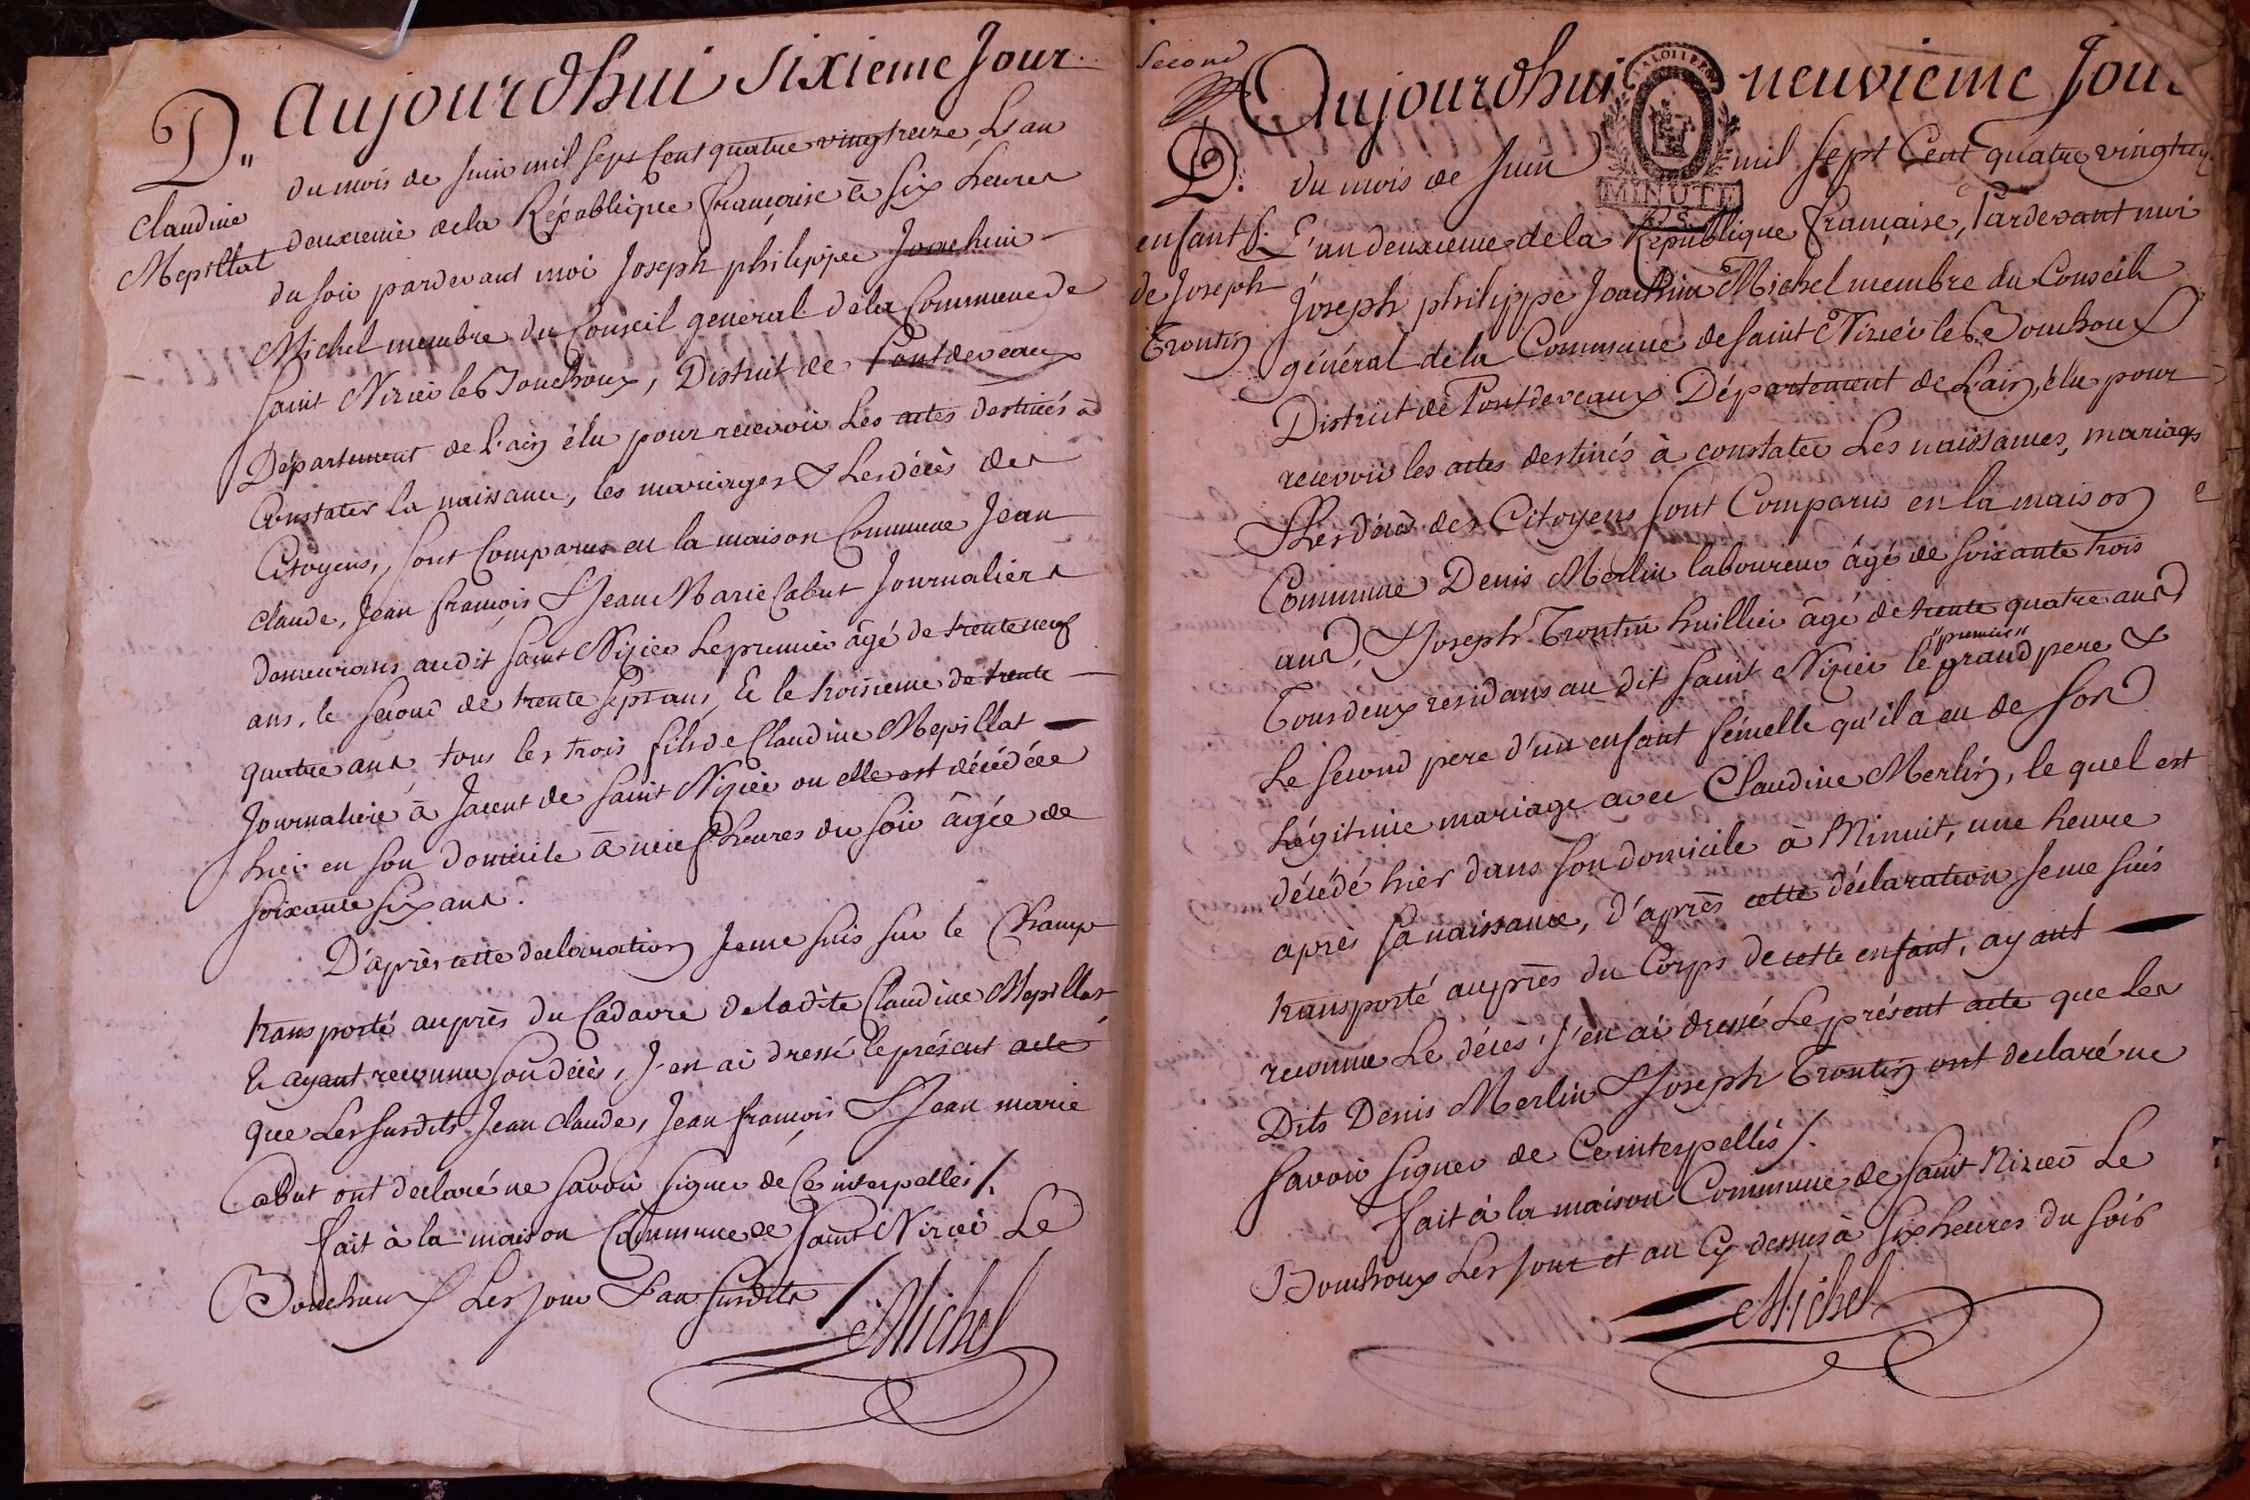 D.
Claudine
Mepillat
aujourdhui sixieme Jour
du mois de Juin mil sept Cent quatre vingt treize L'an
deuxieme de la République française à six heures
du soir pardevant moi Joseph philippe Joachim
Michel membre du Conseil general de la Commune de
Saint Nizier le Bouchoux, District de Pontdevaux
Département de l'ain élu pour recevoir Les actes destinés à
Constater la naissance, les mariages & les décès des
Citoyens, sont Comparus en la maison Commune Jean
Claude, Jean françois & Jean Marie Cabut Journaliers
demeurans audit Saint Nizier Le premier âgé de trente neuf
ans, le second de trente sept ans, Et le troisieme de trente
quatre ans tous les trois fils de Claudine Mepillat
Journaliere à Jacent de Saint Nizier ou elle est décédée
hier en son domicile à neuf heures du soir âgée de
soixante six ans.
D'après cette declaration Je me suis sur le Champ
transporté auprès du Cadavre de ladite Claudine Mepillat
Et ayant reconnu son décès, J'en ai dressé le présent acte
que Les susdits Jean Claude, Jean françois & Jean marie
Cabut ont declaré ne savoir signer de Ce interpellés /.
fait à la maison Commune de Saint Nizier Le
Bouchoux Les jour & an susdits /
Michel
Second
D.
enfant f.
de Joseph
Trontin
Aujourdhui neuvieme Jour
LA LOI LE ROI
MINUTE
du mois de Juin mil sept Cent quatre vingt treize
L'an deuxieme de la République française, Pardevant moi
Joseph philippe Joachim Michel membre du Conseil
général de la Commune de Saint Nizier le Bouchoux
District de Pontdevaux Département de L'ain, élu pour
recevoir les actes destinés à constater Les naissances, mariages
& Les décès des Citoyens sont Comparus en la maison
Commune Denis Merlin laboureur âgé de soixante trois
ans, & Joseph Trontin huillier âgé de trente quatre ans
Tous deux residans au dit Saint Nizier le premier grand pere &
Le second pere d'un enfant fémelle qu'il a eu de son
Légitime mariage avec Claudine Merlin, le quel est
décédé hier dans son domicile à Minuit, une heure
après sa naissance, d'après cette déclaration Je me suis
transporté auprès du Corps de cette enfant, ayant
reconnu Le décès, J'en ai dressé Le présent acte que Les
Dits Denis Merlin & Joseph Trontin ont declaré ne
savoir signer de Ce interpellés /.
fait à la maison Commune de Saint Nizier Le
Bouchoux Les jour et an Cy dessus à six heures du soir
Michel